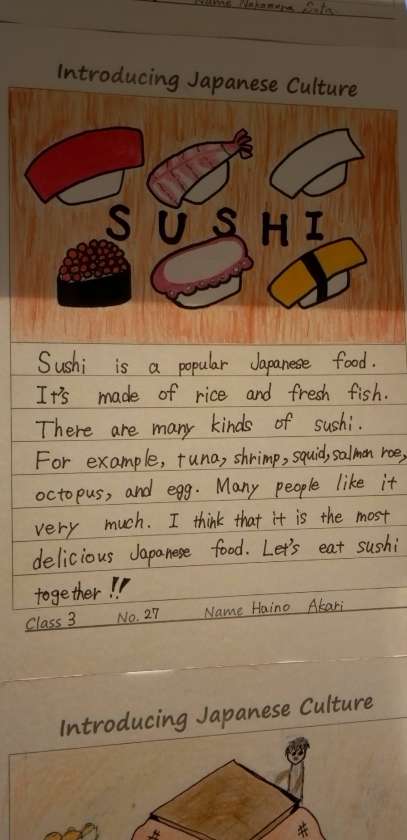 Name Nakamura Sota
Introducing Japanese Culture
SUSHI
Sushi is a popular Japanese food.
It's made of rice and fresh fish.
There are many kinds of sushi.
For example, tuna, shrimp, squid, salmon roe,
octopus, and egg. Many people like it
very much. I think that it is the most
delicious Japanese food. Let's eat sushi
together!!
Class 3 No. 27 Name Haino Akari
Introducing Japanese Culture